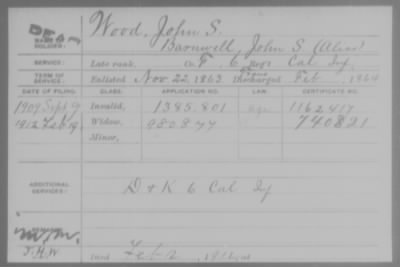 Wood, John S.
NAME OF SOLDIER: Barnwell, John S. (Alias)
SERVICE: Late rank, Co. F, 6 Regt Cal Inf.
TERM OF SERVICE: Enlisted Nov. 22, 1863 Discharged Feb , 1864
DATE OF FILING. CLASS. APPLICATION NO. LAW. CERTIFICATE NO.
1909 Sept 9 Invalid, 1385.801 1162417
1912 Feb 19 Widow, 980844 740821
Minor,
ADDITIONAL SERVICES: D & K 6 Cal Inf
REMARKS:
J.H.W. Died Feb 2, 1912, at